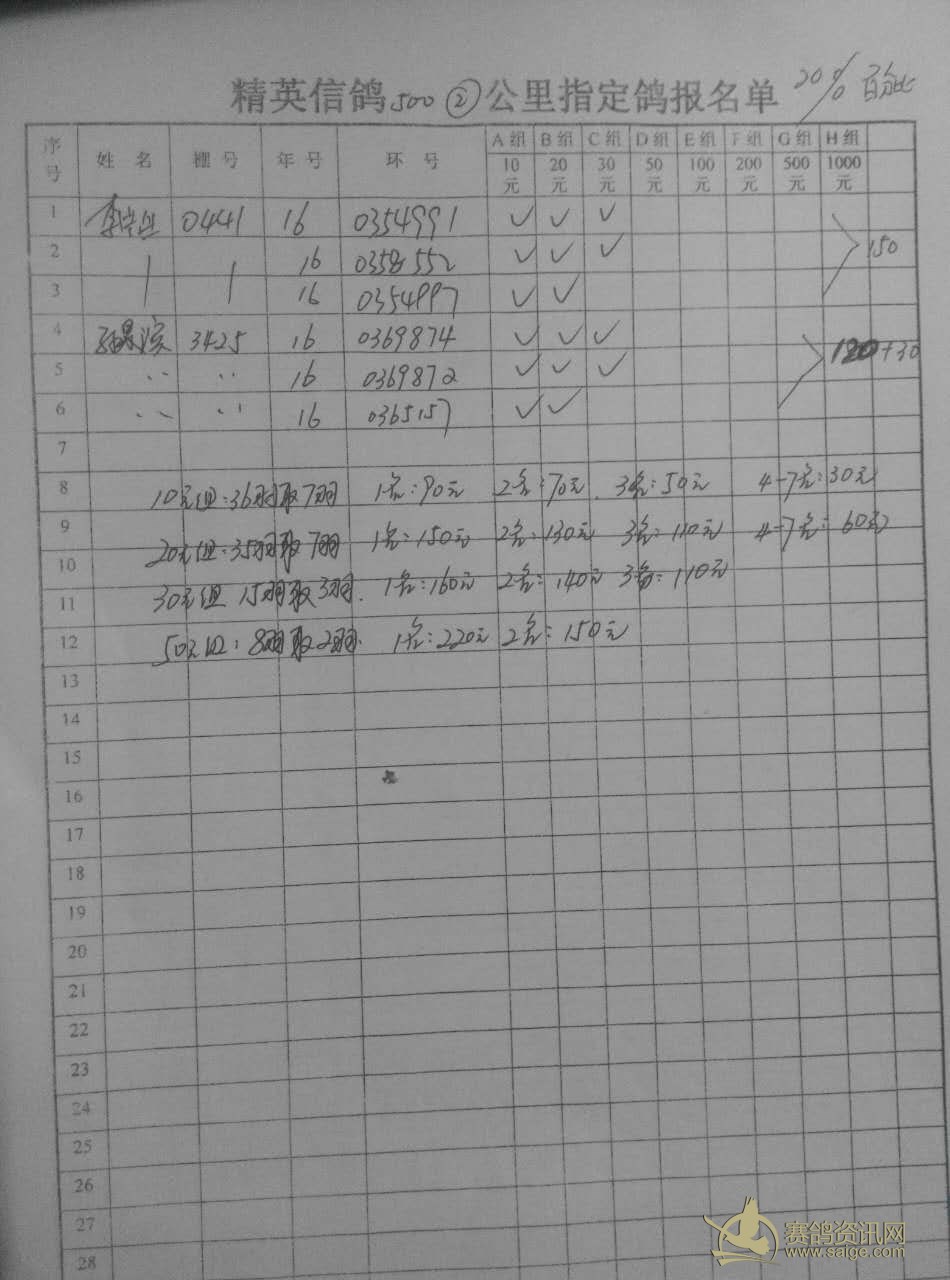 精英信鸽500②公里指定鸽报名单 20% 百分比
序号 姓名 棚号 年号 环号 A组 B组 C组 D组 E组 F组 G组 H组
10元 20元 30元 50元 100元 200元 500元 1000元
1 0441 16 0354991 ✓ ✓ ✓
2 16 0358552 ✓ ✓ ✓ 150
3 16 0354997 ✓ ✓
4 3425 16 0369874 ✓ ✓ ✓
5 〃 〃 16 0369872 ✓ ✓ ✓ 120+30
6 〃 〃 16 0365157 ✓ ✓
7
8 10元组:36羽取7羽 1名:90元 2名:70元 3名:50元 4-7名:30元
9 20元组:35羽取7羽 1名:150元 2名:130元 3名:110元 4-7名:60元
10
11 30元组 15羽取3羽. 1名:160元 2名:140元 3名:110元
12 50元组:8羽取2羽. 1名:220元 2名:150元
13
14
15
16
17
18
19
20
21
22
23
24
25
26
27
28
赛鸽资讯网
www.saige.com